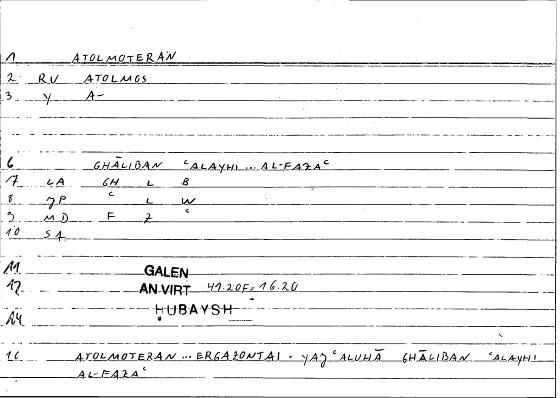 1 ATOLMOTERAN
2 RV ATOLMOS
3 Y A-
6 GHĀLIBAN ʿALAYHI ... AL-FAZAʿ
17 LA GH L B
8 JP ʿ L W
9 MD F Z ʿ
10 SA
11 GALEN
12 AN VIRT 41.20F = 16.20
14 HUBAYSH
16 ATOLMOTERAN ... ERGAZONTAI · YAJʿALUHĀ GHĀLIBAN ʿALAYHI
AL-FAZAʿ